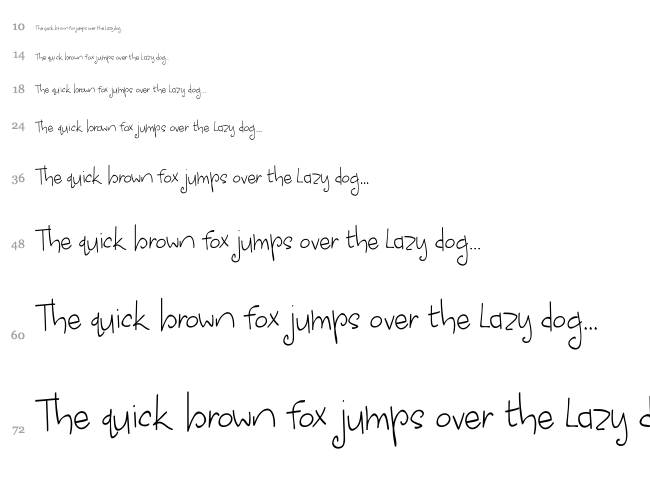 10 The quick brown fox jumps over the Lazy dog...
14 The quick brown fox jumps over the Lazy dog...
18 The quick brown fox jumps over the Lazy dog...
24 The quick brown fox jumps over the Lazy dog...
36 The quick brown fox jumps over the Lazy dog...
48 The quick brown fox jumps over the Lazy dog...
60 The quick brown fox jumps over the Lazy dog...
72 The quick brown fox jumps over the Lazy d